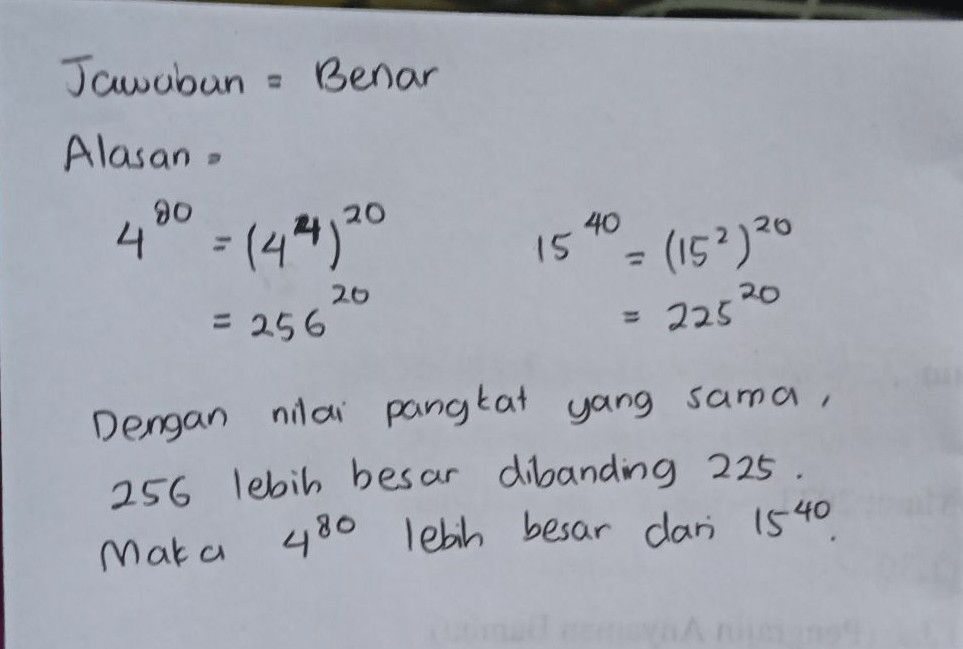 Jawaban = Benar
Alasan =
4^80 = (4^4)^20
= 256^20
15^40 = (15^2)^20
= 225^20
Dengan nilai pangkat yang sama,
256 lebih besar dibanding 225.
Maka 4^80 lebih besar dari 15^40.